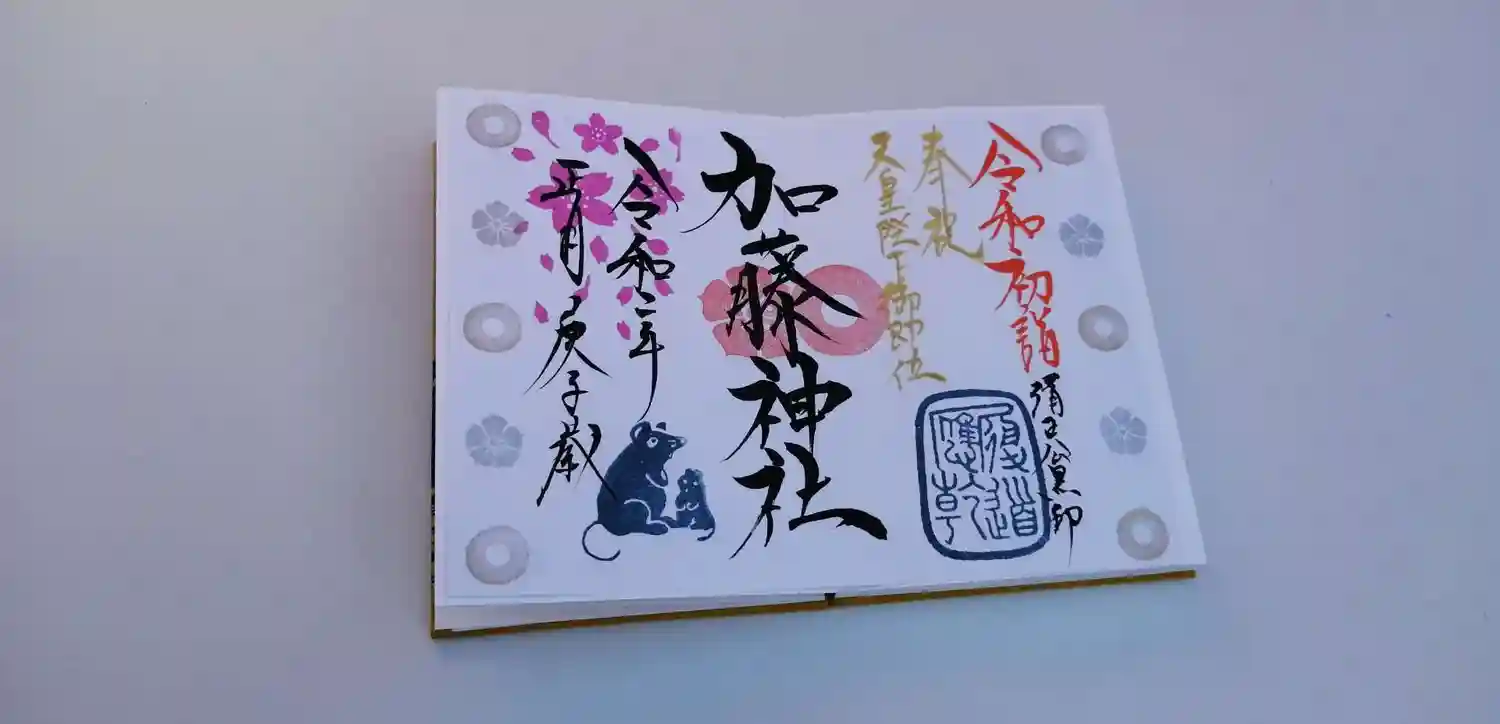 令和初詣
奉祝
天皇陛下御即位
加藤神社
令和二年
正月庚子歳